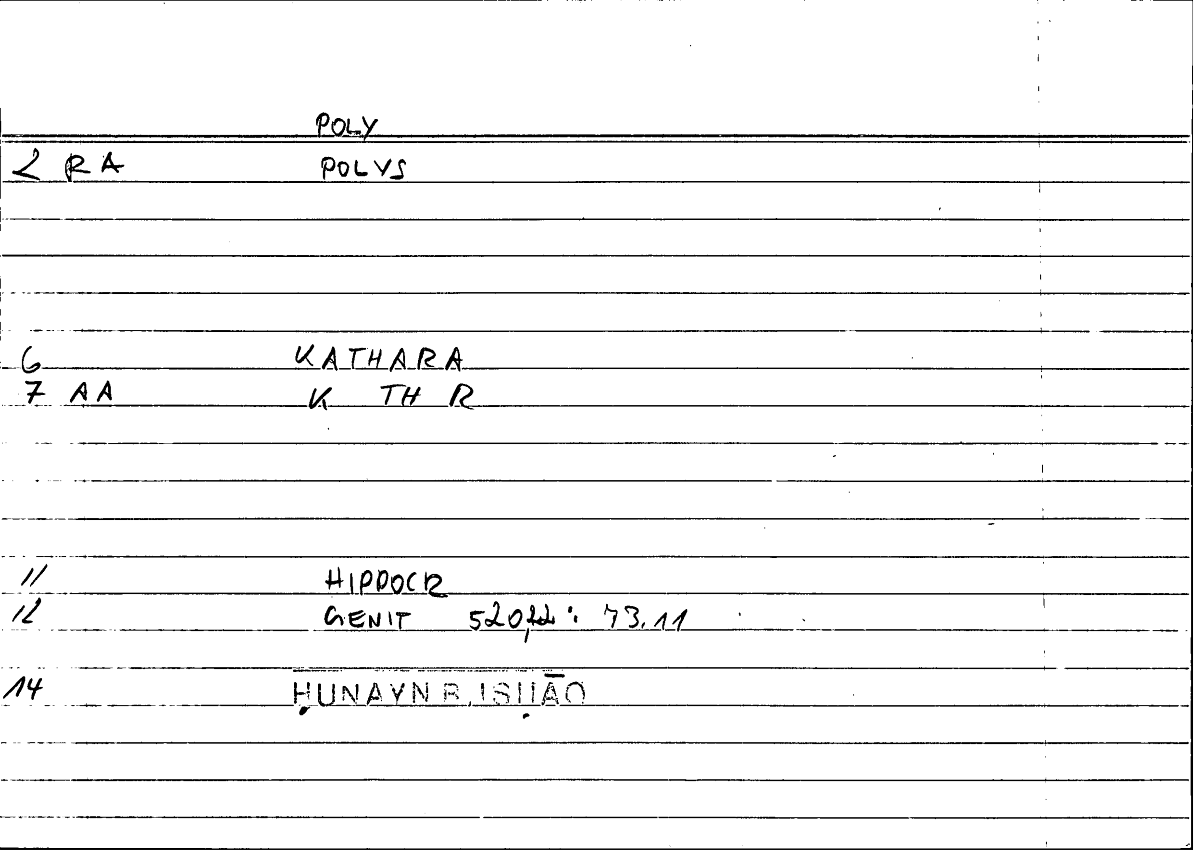 POLY
2 RA POLVS
6 KATHARA
7 AA K TH R
11 HIPPOCR
12 GENIT 520,22 : 73.11
14 ḤUNAYN B. ISḤĀQ